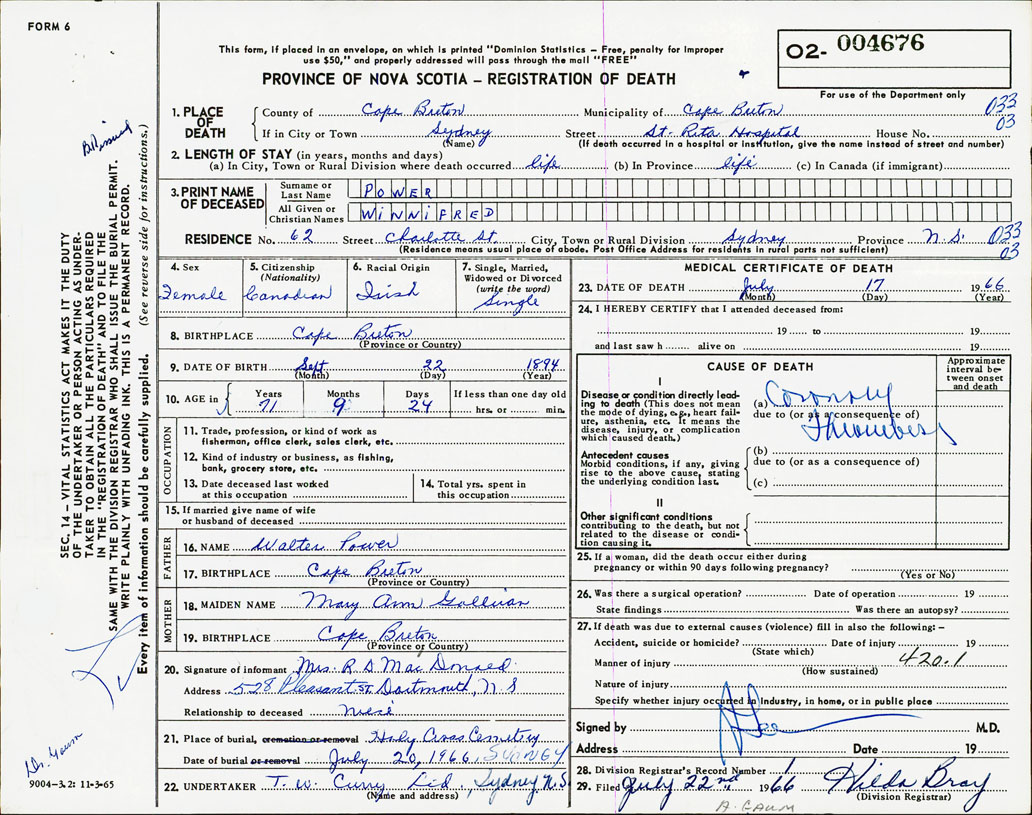 FORM 6
This form, if placed in an envelope, on which is printed "Dominion Statistics – Free, penalty for improper
use $50," and properly addressed will pass through the mail "FREE"
PROVINCE OF NOVA SCOTIA – REGISTRATION OF DEATH
02- 004676
For use of the Department only
1. PLACE OF DEATH
County of Cape Breton Municipality of Cape Breton 033
If in City or Town Sydney Street St. Rita Hospital House No. 03
(Name) (If death occurred in a hospital or institution, give the name instead of street and number)
2. LENGTH OF STAY (in years, months and days)
(a) In City, Town or Rural Division where death occurred life (b) In Province life (c) In Canada (if immigrant)
3. PRINT NAME OF DECEASED
Surname or Last Name POWER
All Given or Christian Names WINNIFRED
RESIDENCE No. 62 Street Charlotte St. City, Town or Rural Division Sydney Province N.S. 033
(Residence means usual place of abode. Post Office Address for residents in rural parts not sufficient) 03
4. Sex Female
5. Citizenship (Nationality) Canadian
6. Racial Origin Irish
7. Single, Married, Widowed or Divorced (write the word) Single
8. BIRTHPLACE Cape Breton
(Province or Country)
9. DATE OF BIRTH Sept 22 1894
(Month) (Day) (Year)
10. AGE in Years 71 Months 9 Days 24 If less than one day old
hrs. or min.
OCCUPATION
11. Trade, profession, or kind of work as
fisherman, office clerk, sales clerk, etc.
12. Kind of industry or business, as fishing,
bank, grocery store, etc.
13. Date deceased last worked
at this occupation
14. Total yrs. spent in
this occupation
15. If married give name of wife
or husband of deceased
FATHER
16. NAME Walter Power
17. BIRTHPLACE Cape Breton
(Province or Country)
MOTHER
18. MAIDEN NAME Mary Ann Gallivan
19. BIRTHPLACE Cape Breton
(Province or Country)
20. Signature of informant Mrs. R. D. Mac Donald
Address 528 Pleasant St. Dartmouth, N.S
Relationship to deceased niese
21. Place of burial, cremation or removal Holy Cross Cemetry
Date of burial or removal July 20, 1966, SYDNEY
22. UNDERTAKER T. W. Curry Ltd., Sydney N.S
(Name and address)
MEDICAL CERTIFICATE OF DEATH
23. DATE OF DEATH July 17 1966
(Month) (Day) (Year)
24. I HEREBY CERTIFY that I attended deceased from:
19 to 19
and last saw h alive on 19
CAUSE OF DEATH
Approximate interval between onset and death
I
Disease or condition directly leading to death (This does not mean the mode of dying, e.g., heart failure, asthenia, etc. It means the disease, injury, or complication which caused death.)
(a) Coronary
due to (or as a consequence of)
Thrombosis
Antecedent causes
Morbid conditions, if any, giving rise to the above cause, stating the underlying condition last.
(b)
due to (or as a consequence of)
(c)
II
Other significant conditions
contributing to the death, but not related to the disease or condition causing it.
25. If a woman, did the death occur either during
pregnancy or within 90 days following pregnancy?
(Yes or No)
26. Was there a surgical operation? Date of operation 19
State findings Was there an autopsy?
27. If death was due to external causes (violence) fill in also the following: –
Accident, suicide or homicide? Date of injury 19
(State which)
Manner of injury 420.1
(How sustained)
Nature of injury
Specify whether injury occurred in industry, in home, or in public place
Signed by M.D.
Address Date 19
28. Division Registrar's Record Number 1
29. Filed July 22nd 1966 Hilda Bray
(Division Registrar)
A. GAUM
SEC. 14 – VITAL STATISTICS ACT MAKES IT THE DUTY
OF THE UNDERTAKER OR PERSON ACTING AS UNDER-
TAKER TO OBTAIN ALL THE PARTICULARS REQUIRED
IN THE "REGISTRATION OF DEATH" AND TO FILE THE
SAME WITH THE DIVISION REGISTRAR WHO SHALL ISSUE THE BURIAL PERMIT.
WRITE PLAINLY WITH UNFADING INK. THIS IS A PERMANENT RECORD.
Every item of information should be carefully supplied. (See reverse side for instructions.)
Dr. Gaum
9004-3.2: 11-3-65